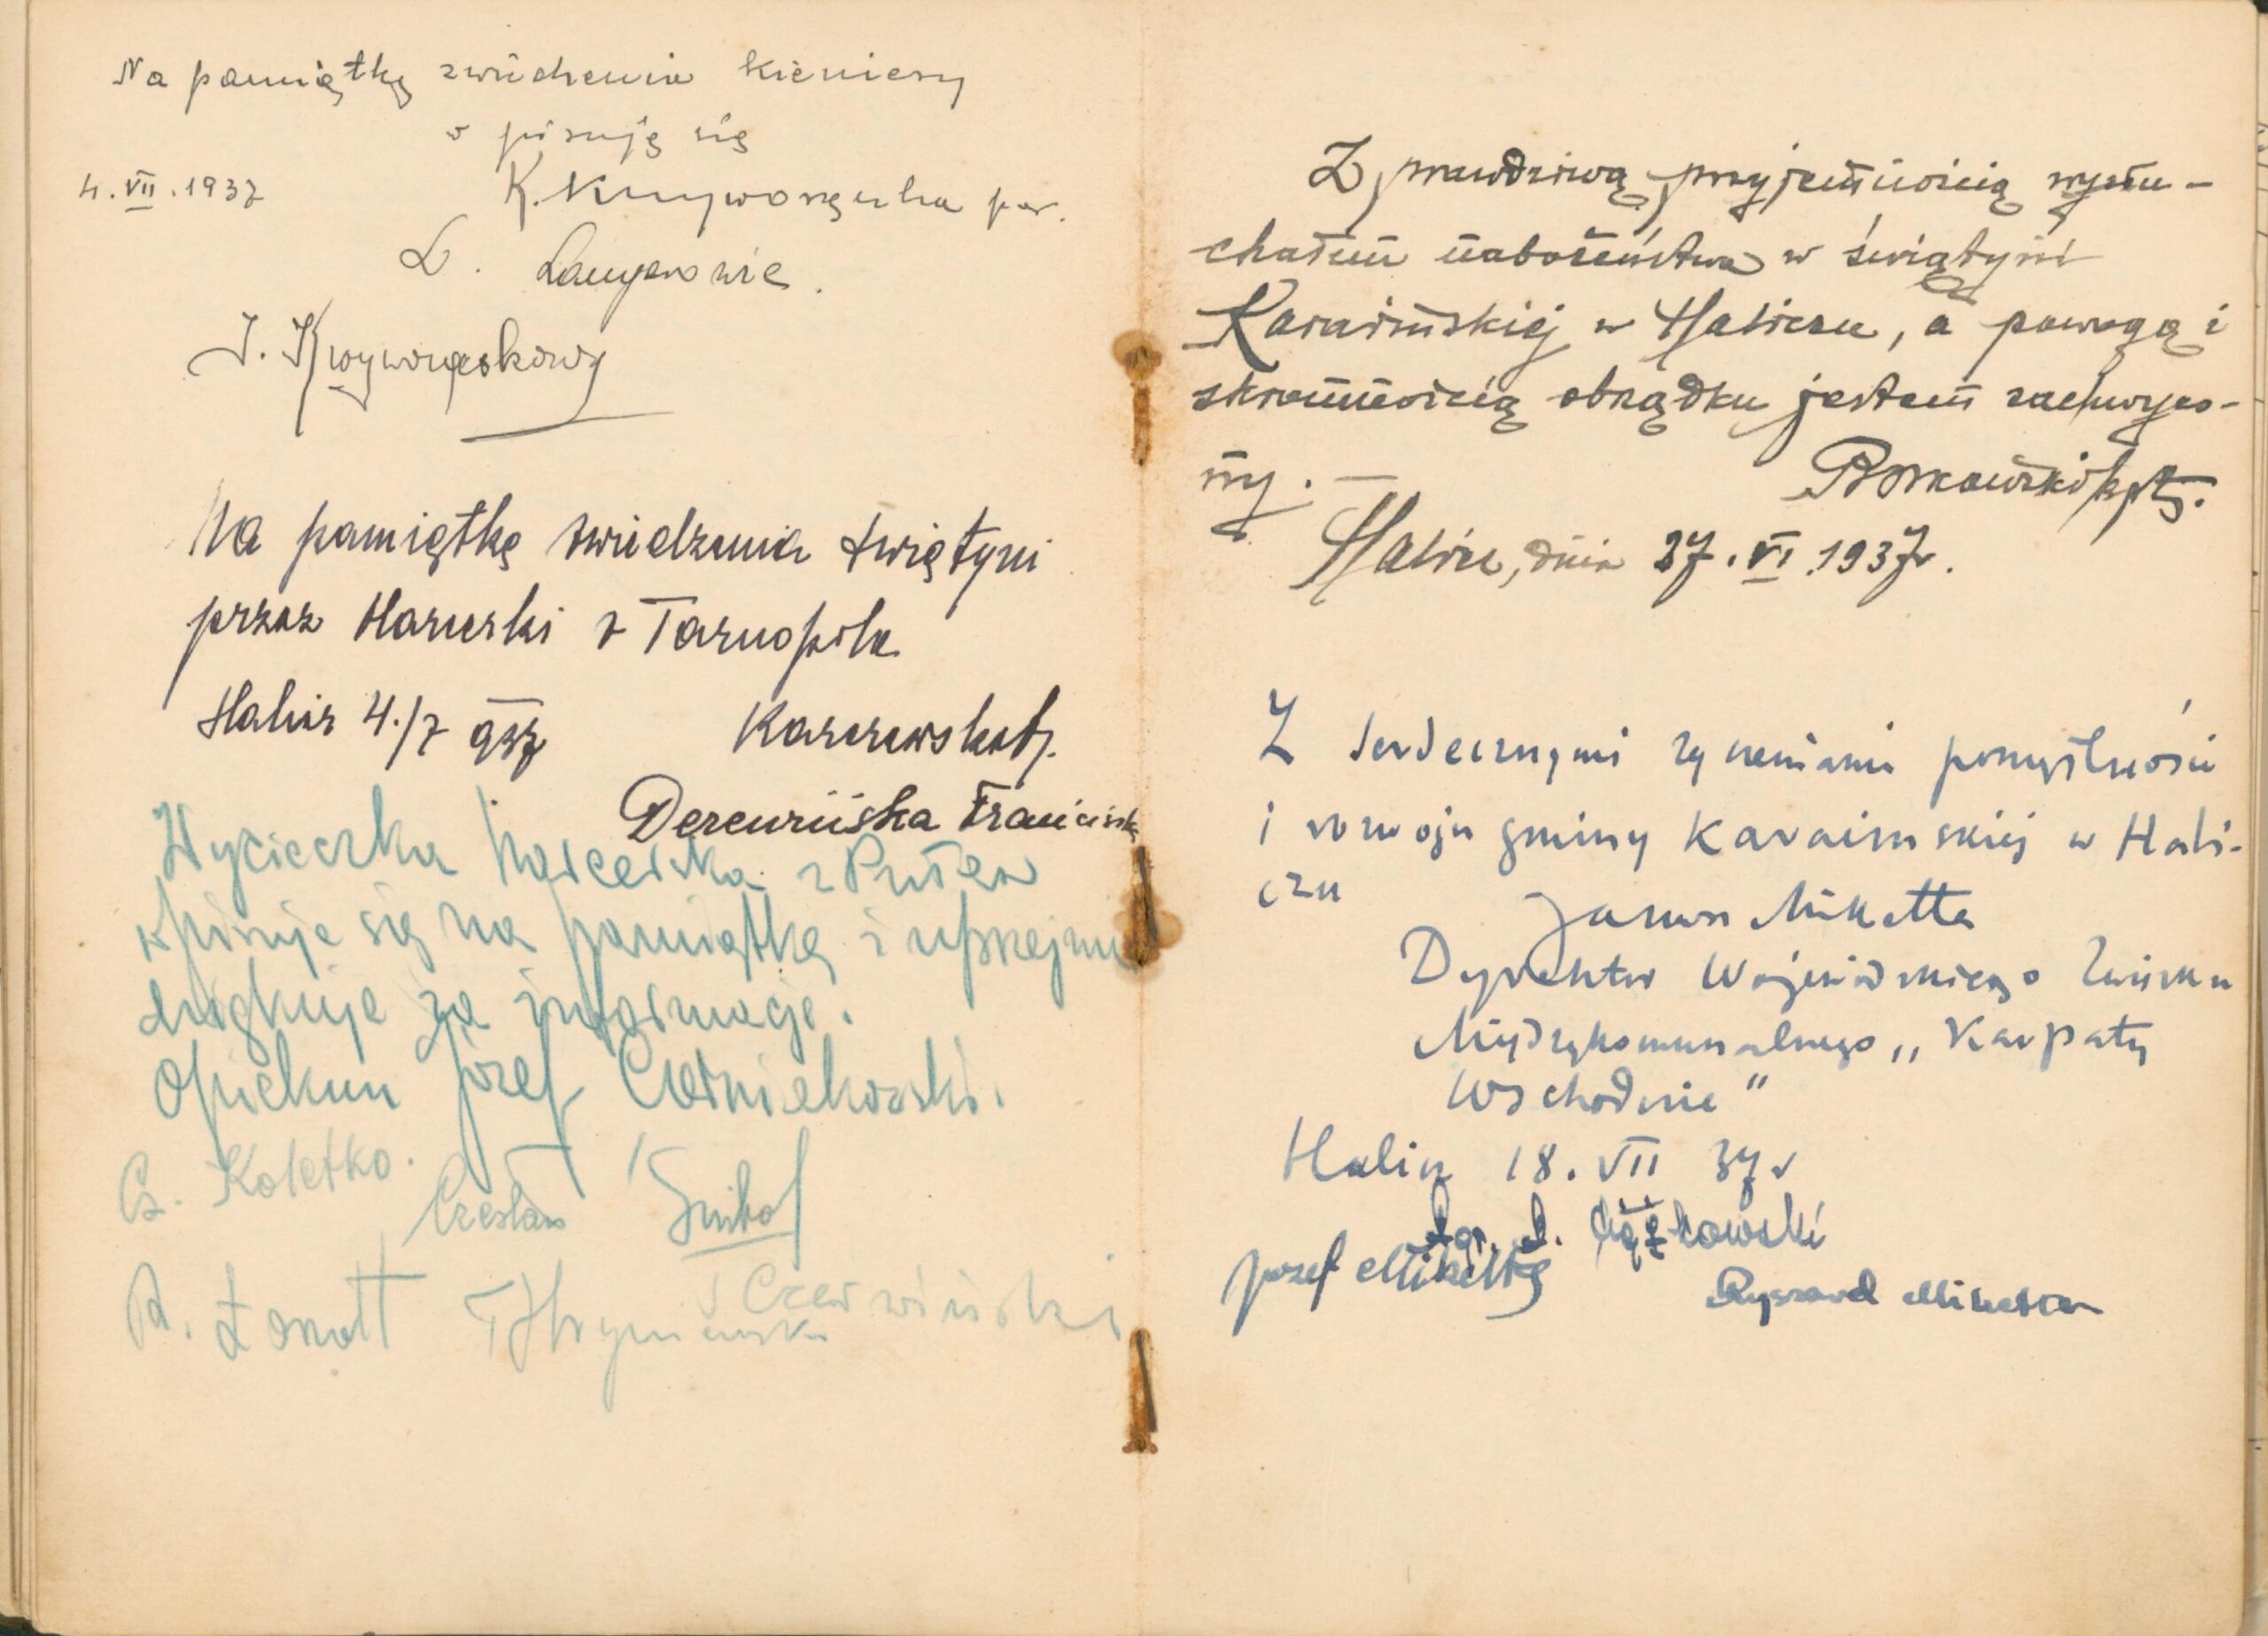 Na pamiątkę zwiedzenia kieniesy
wpisuję się
4. VII. 1937
K.
L.
J.
Na pamiątkę zwiedzenia świątyni
przez Harcerki z Tarnopola
Halicz 4./7 937
Derenrińska
Wycieczka harcerska z Puław
wpisuje się na pamiątkę i uprzejmie
dziękuje za informacje.
Opiekun Józef Czerniekowski.
Cz. Koletko.
Czesław
R.
Czerwiński
Z prawdziwą przyjemnością wysłu-
chałem nabożeństwa w świątyni
Karaimskiej w Haliczu, a powagą i
skromnością obrządku jestem zachwyco-
ny. —
Borkowski kpt.
Halicz, dnia 27. VI. 1937 r.
Z serdecznymi życzeniami pomyślności
i rozwoju gminy Karaimskiej w Hali-
czu
Janusz Miketta
Dyrektor Wojewódzkiego Związku
Międzykomunalnego „Karpaty
Wschodnie"
Halicz 18. VII 37 r
Józef Miketta
Ryszard Miketta